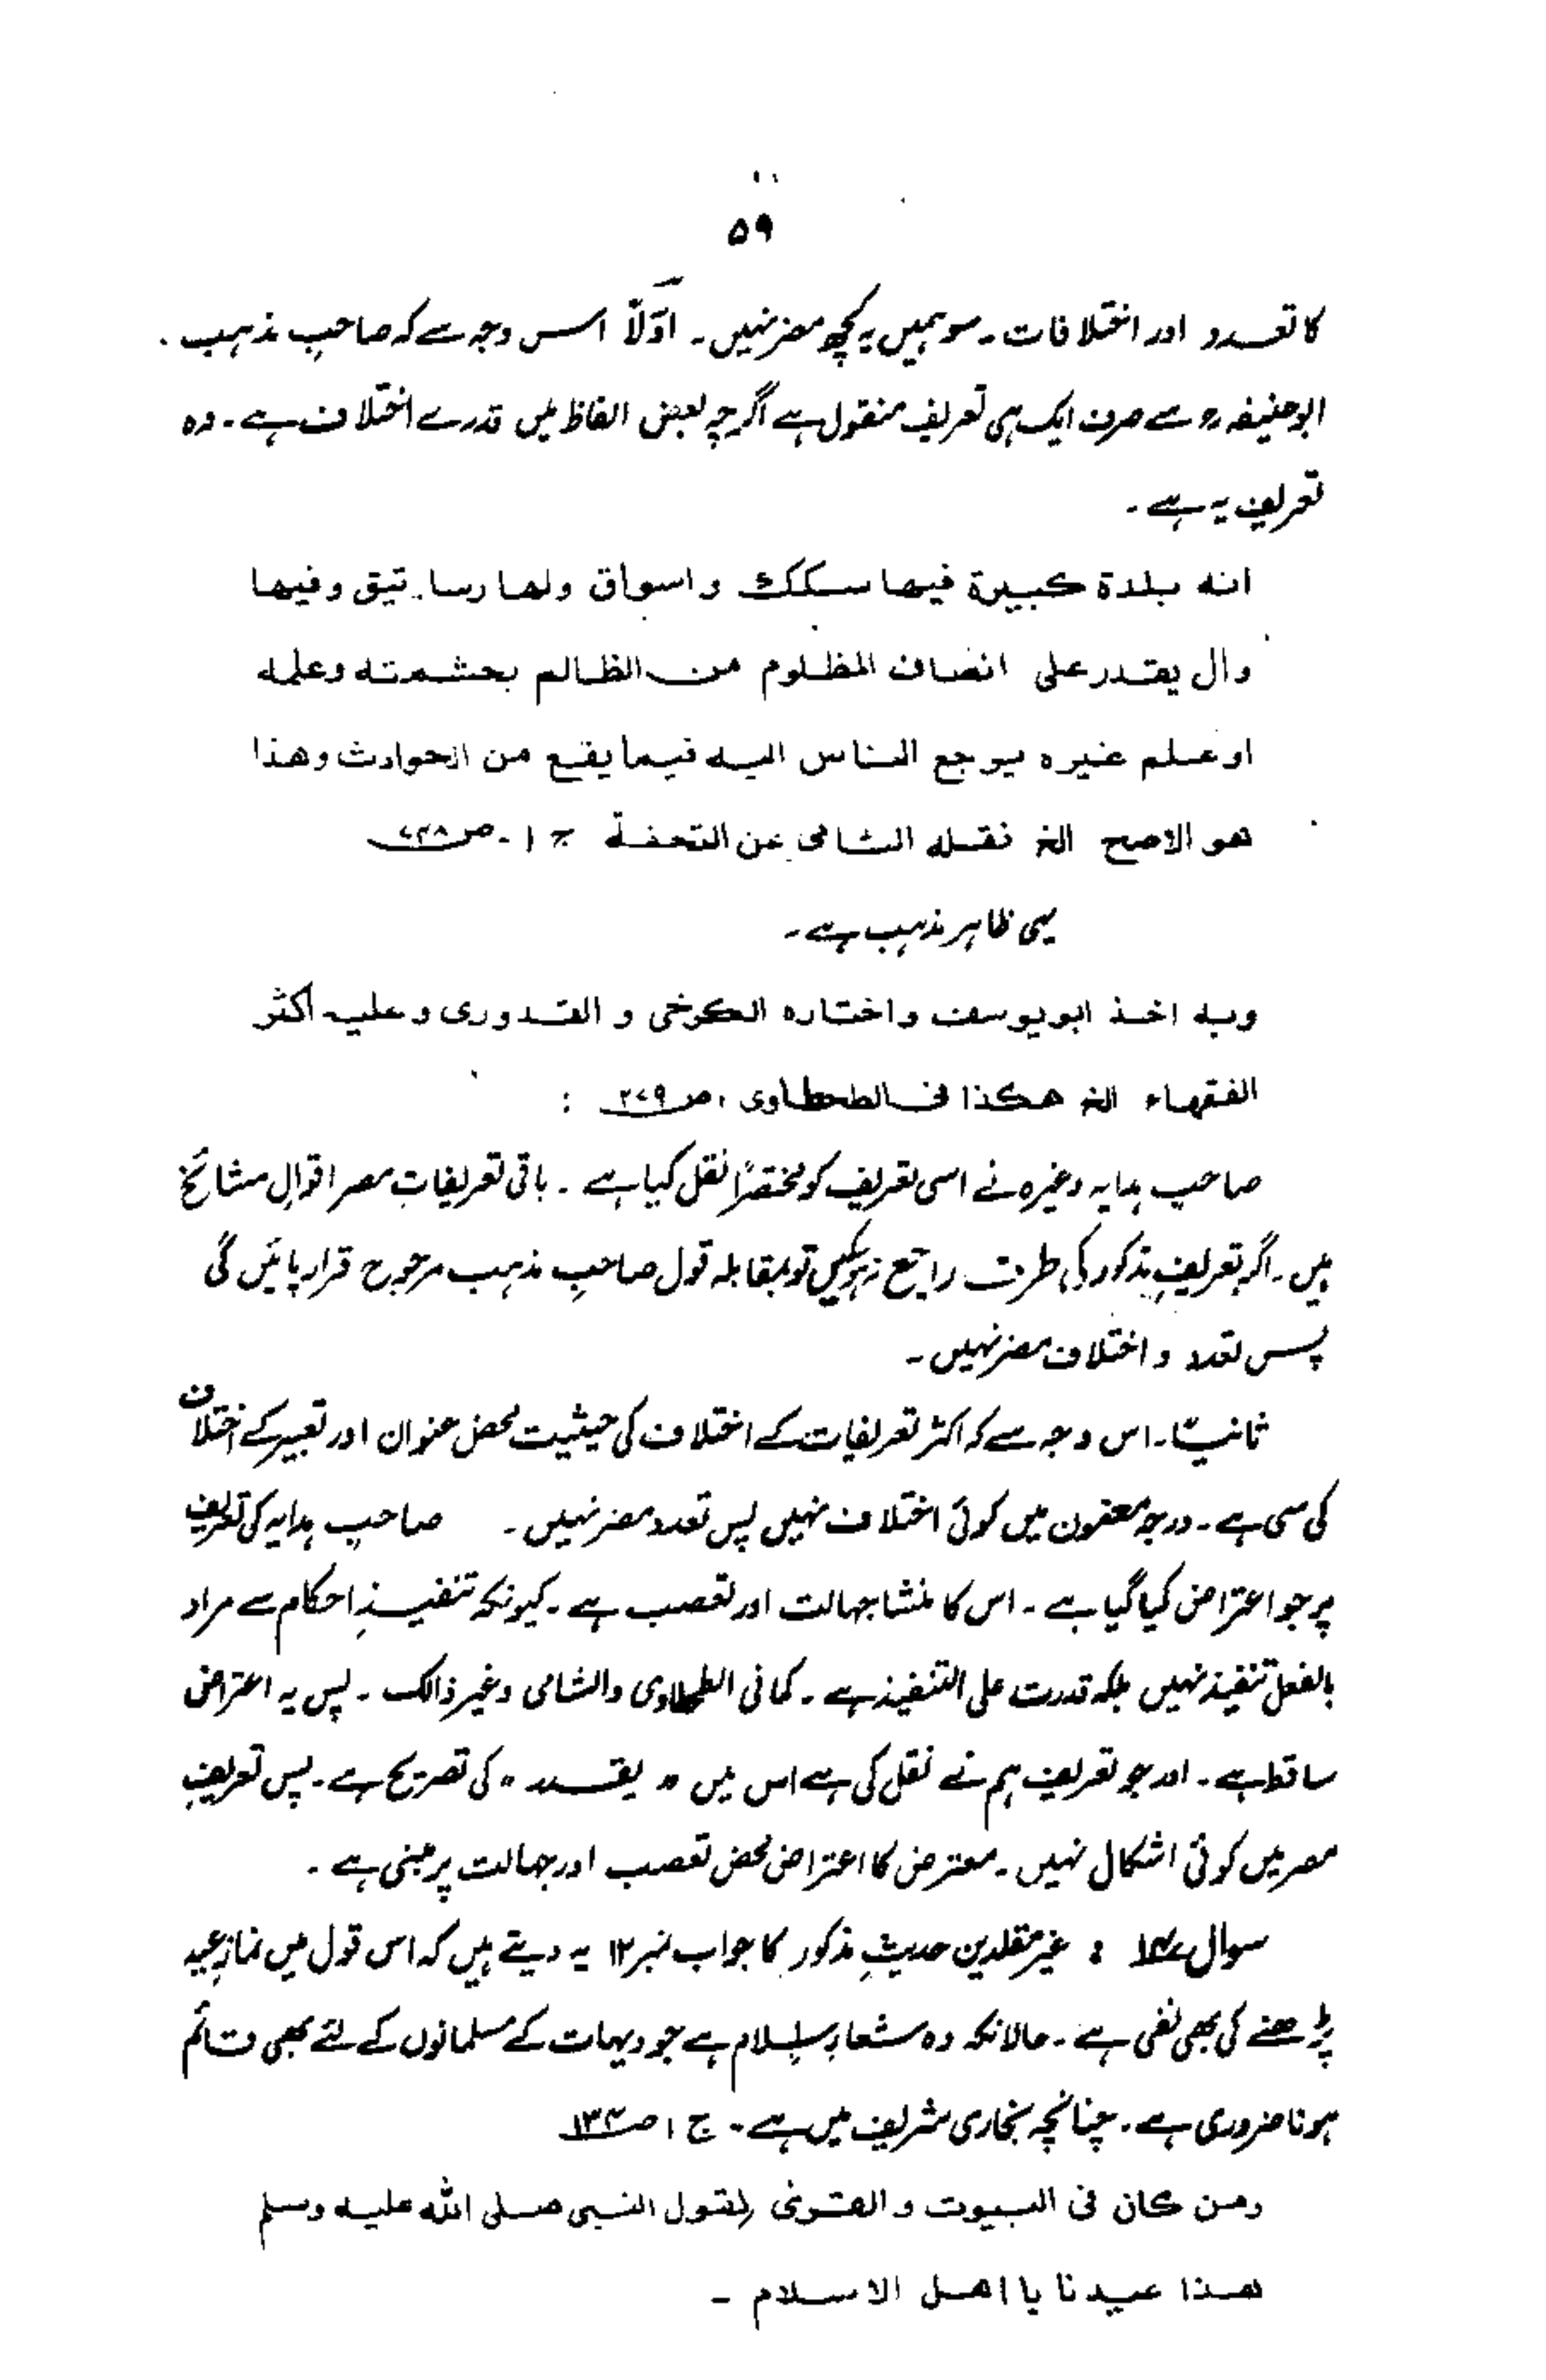 ۵۹
کا تعدد اور اختلافات۔ سو ہمیں یہ کچھ مضر نہیں۔ اوّلاً اس وجہ سے کہ صاحبِ مذہب
ابوحنیفہ رح سے صرف ایک ہی تعریف منقول ہے اگرچہ بعض الفاظ میں قدرے اختلاف ہے۔ وہ
تعریف یہ ہے۔
انه بلدة كبيرة فيها سكك و اسواق ولها رساتيق وفيها
وال يقدر على انصاف المظلوم من الظالم بحشمته وعلمه
او علم غيره يرجع الناس اليه فيما يقع من الحوادث وهذا
هو الاصح الخ نقله الشامى عن التحفة ج ۱۔ ص
یہی ظاہر مذہب ہے۔
وبه اخذ ابويوسف واختاره الكرخى و القدورى وعليه اكثر
الفقهاء الخ هكذا فى الطحطاوى، ص ۲۷۹ :
صاحبِ ہدایہ وغیرہ نے اسی تعریف کو مختصراً نقل کیا ہے۔ باقی تعریفاتِ مصر اقوالِ مشائخ
ہیں۔ اگر تعریفِ مذکور کی طرف راجع نہ ہوسکیں تو بمقابلہ قول صاحبِ مذہب مرجوح قرار پائیں گی
پس تعدد و اختلاف مضر نہیں۔
ثانیًا۔ اس وجہ سے کہ اکثر تعریفات کے اختلاف کی حیثیت محض عنوان اور تعبیر کے اختلاف
کی سی ہے۔ درجۂ مضمون میں کوئی اختلاف نہیں پس تعدد مضر نہیں۔ صاحبِ ہدایہ کی تعریف
پر جو اعتراض کیا گیا ہے۔ اس کا منشا جہالت اور تعصب ہے۔ کیونکہ تنفیذِ احکام سے مراد
بالفعل تنفیذ نہیں بلکہ قدرت علی التنفیذ ہے۔ کما فی الطحطاوی والشامی وغیر ذالک۔ پس یہ اعتراض
ساقط ہے۔ اور جو تعریف ہم نے نقل کی ہے اس میں " یقدر " کی تصریح ہے۔ پس تعریفِ
مصر میں کوئی اشکال نہیں۔ معترض کا اعتراض محض تعصب اور جہالت پر مبنی ہے۔
سوال : غیر مقلدین حدیثِ مذکور کا جواب نمبر ۱۲ یہ دیتے ہیں کہ اس قول میں نمازِ عید
پڑھنے کی بھی نفی ہے۔ حالانکہ وہ شعارِ اسلام ہے جو دیہات کے مسلمانوں کے لئے بھی قائم
ہونا ضروری ہے۔ چنانچہ بخاری شریف میں ہے۔ ج ۱ ص ۱۳۴
ومن كان فى البيوت و القرىٰ لقول النبى صلى الله عليه وسلم
هذا عيدنا يا اهل الاسلام ۔